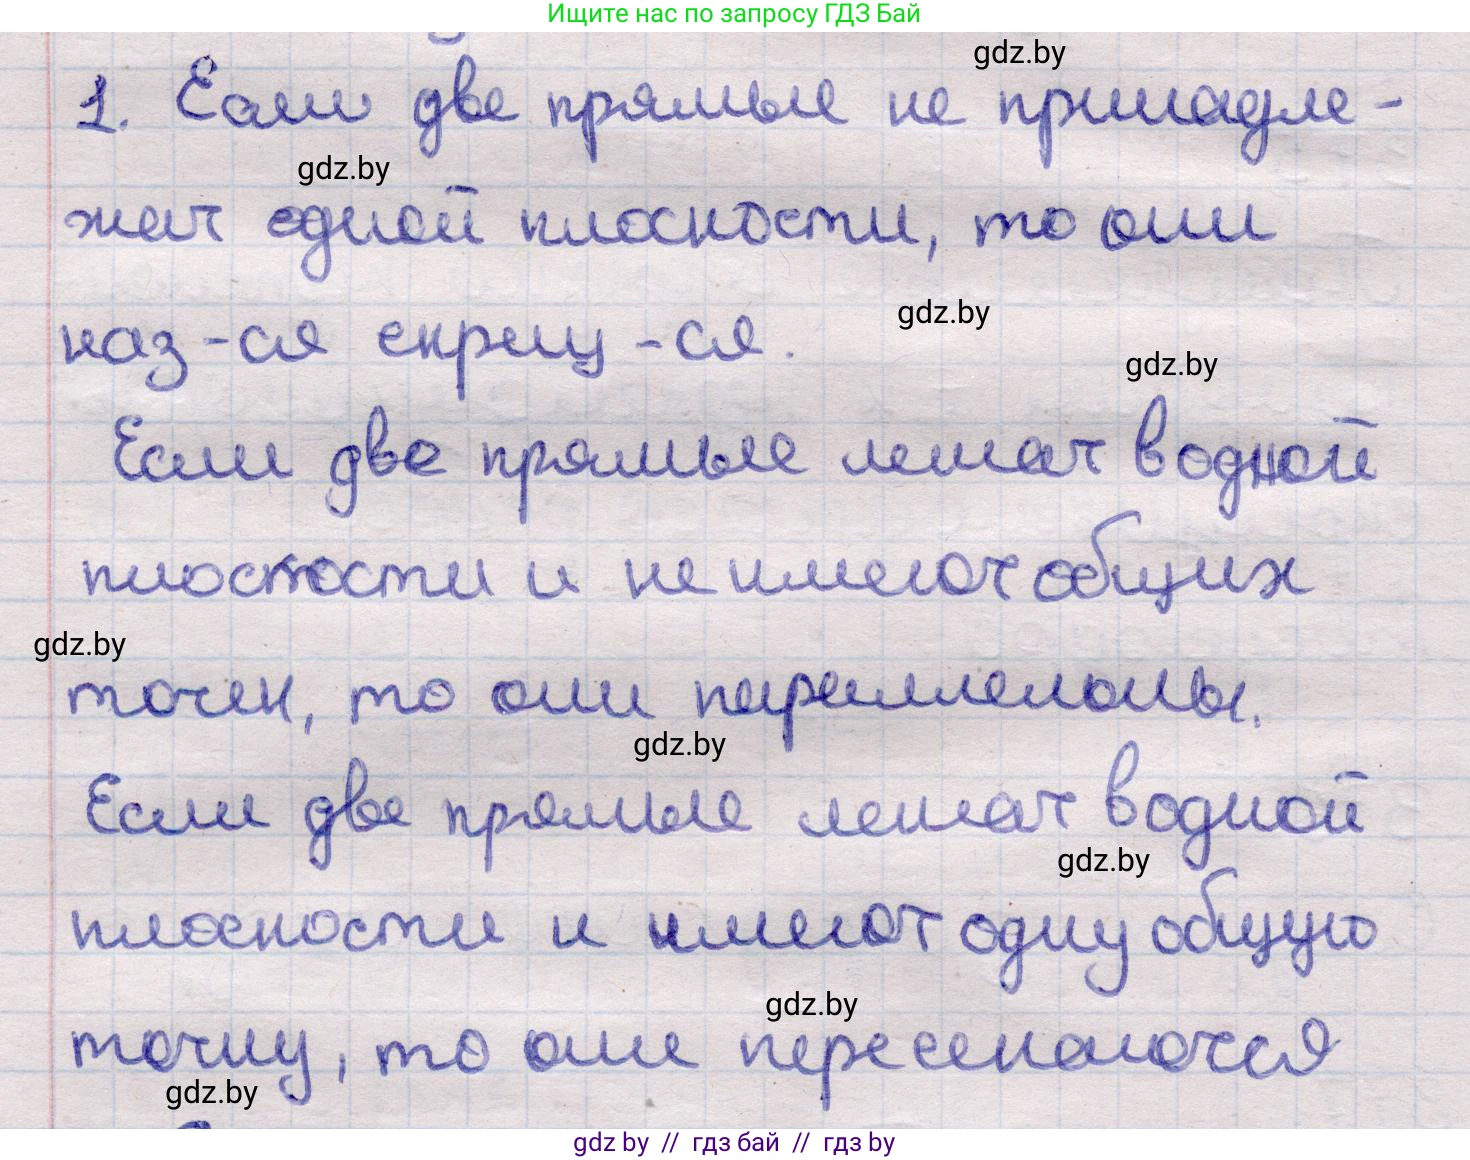 Ищите нас по запросу ГДЗ Бай
gdz.by
1. Если две прямые не принадле-
gdz.by
жат одной плоскости, то они
gdz.by
наз-ся скрещ-ся.
gdz.by
Если две прямые лежат в одной
плоскости и не имеют общих
gdz.by
точек, то они параллельны.
gdz.by
Если две прямые лежат в одной
gdz.by
плоскости и имеют одну общую
gdz.by
точку, то они пересекаются
gdz.by
gdz by // гдз бай // гдз by